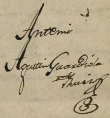 Antemi
Agustin Guardiola